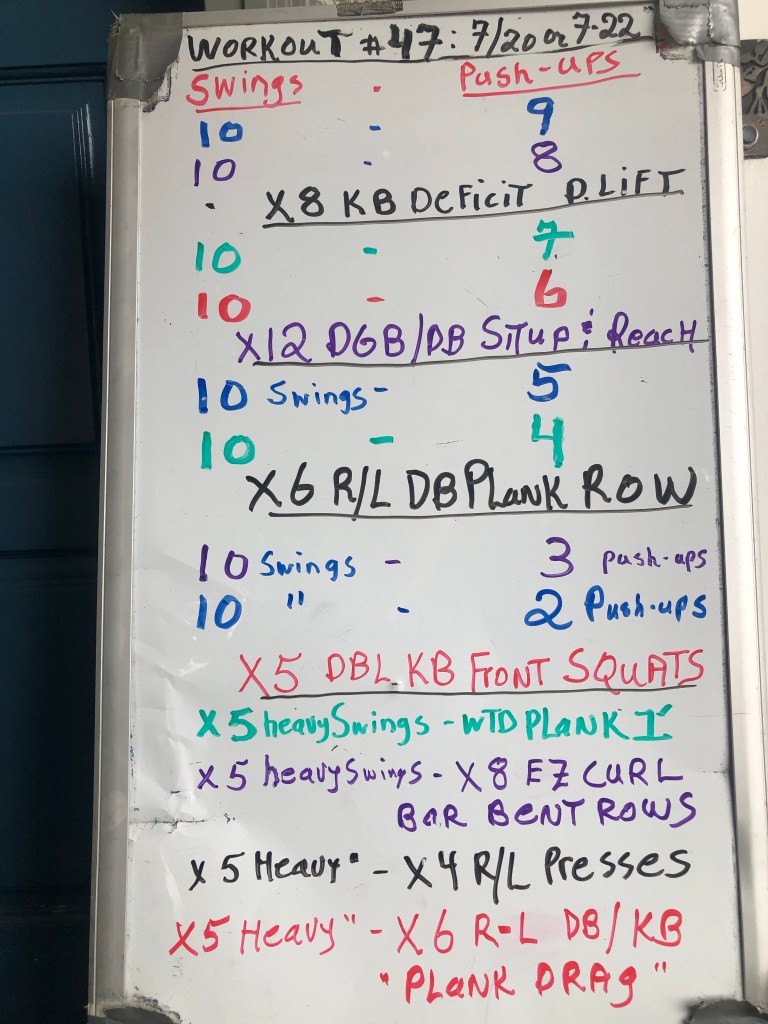 WORKOUT #47: 7/20 or 7-22
Swings - Push-ups
10 - 9
10 - 8
X8 KB Deficit D.LiFT
10 - 7
10 - 6
X12 DGB/DB SiTup & Reach
10 Swings- 5
10 - 4
X6 R/L DB PLanK ROW
10 Swings - 3 push-ups
10 " - 2 Push-ups
X5 DBL KB FRONT SQUATS
X5 heavy Swings - WTD PLANK 1'
X5 heavy swings - X8 EZ CURL
BaR BENT ROWS
X5 Heavy" - X4 R/L Presses
X5 Heavy" - X6 R-L DB/KB
"PLaNK DRAg"